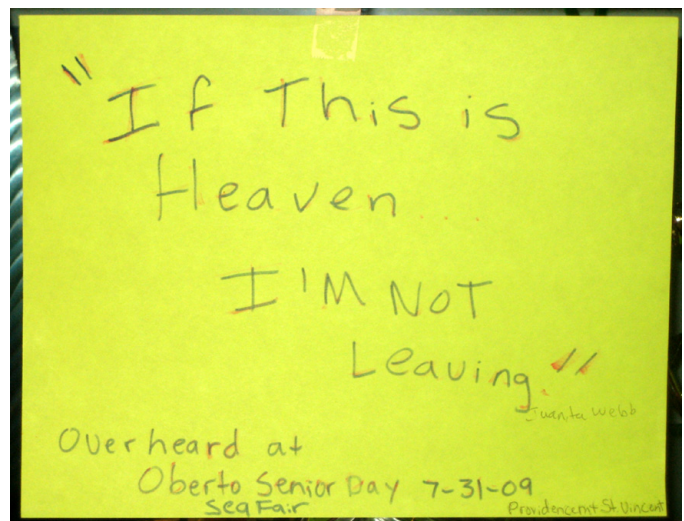 "If This is
Heaven...
I'M NOT
Leaving."
Juanita Webb
Overheard at
Oberto Senior Day 7-31-09
SeaFair
Providencemt St. Vincent